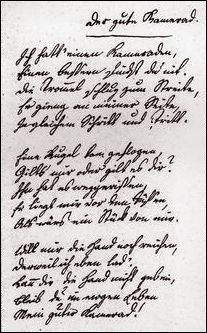 Der gute Kamerad.
Ich hatt' einen Kameraden,
Einen bessern findst du nit.
Die Tromel schlug zum Streite,
Er gieng an meiner Seite,
In gleichem Schritt und Tritt.
Eine Kugel kam geflogen,
Gilt's mir oder gilt es dir?
Ihn hat es weggerissen,
Er liegt mir vor den Füßen,
Als wär's ein Stück von mir.
Will mir die Hand noch reichen,
Derweil ich eben lad'
Kann dir die Hand nicht geben,
Bleib du im ewgen Leben
Mein guter Kamerad!